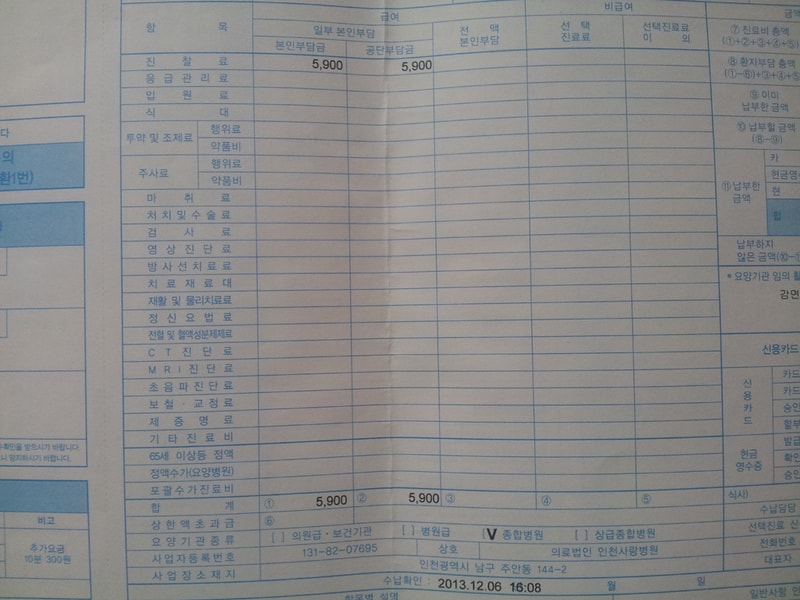 급여
비급여
금액
항 목
일부 본인부담
본인부담금
공단부담금
전 액
본인부담
선 택
진료료
선택진료료
이 외
⑦ 진료비 총액
(①+②+③+④+⑤)
진 찰 료 5,900 5,900
⑧ 환자부담 총액
(①-⑥)+③+④+⑤
응 급 관 리 료
입 원 료
⑨ 이미
납부한 금액
식 대
투약 및 조제료
행위료
약품비
⑩ 납부할 금액
(⑧-⑨)
주사료
행위료
약품비
⑪ 납부한
금액
카
현금영수
현
합
마 취 료
처 치 및 수 술 료
검 사 료
영 상 진 단 료
납부하지
않은 금액(⑩-
방 사 선 치 료 료
* 요양기관 임의 활
치 료 재 료 대
감면
재활 및 물리치료료
정 신 요 법 료
전혈 및 혈액성분제제료
신용카드
C T 진 단 료
M R I 진 단 료
초 음 파 진 단 료
보 철 · 교 정 료
제 증 명 료
기 타 진 료 비
신
용
카
드
카드
카드
승인
할부
현금
영수증
발급
확인
승인
65세 이상등 정액
정액수가(요양병원)
포 괄 수 가 진 료 비
식사)
합 계 ① 5,900 ② 5,900 ③ ④ ⑤
수납담당
상 한 액 초 과 금 ⑥
선택진료 신
요 양 기 관 종 류 [ ] 의원급 · 보건기관 [ ] 병원급 [V 종합병원 [ ] 상급종합병원
전화번호
사 업 자 등 록 번 호 131-82-07695 상호 의료법인 인천사랑병원
대표자
사 업 장 소 재 지 인천광역시 남구 주안동 144-2
수납확인 : 2013.12.06 16:08 월 일
항목별 설명
일반사항 안
다
의
환1번)
수확인을 받으시기 바랍니다.
비고
추가요금
10분 300원